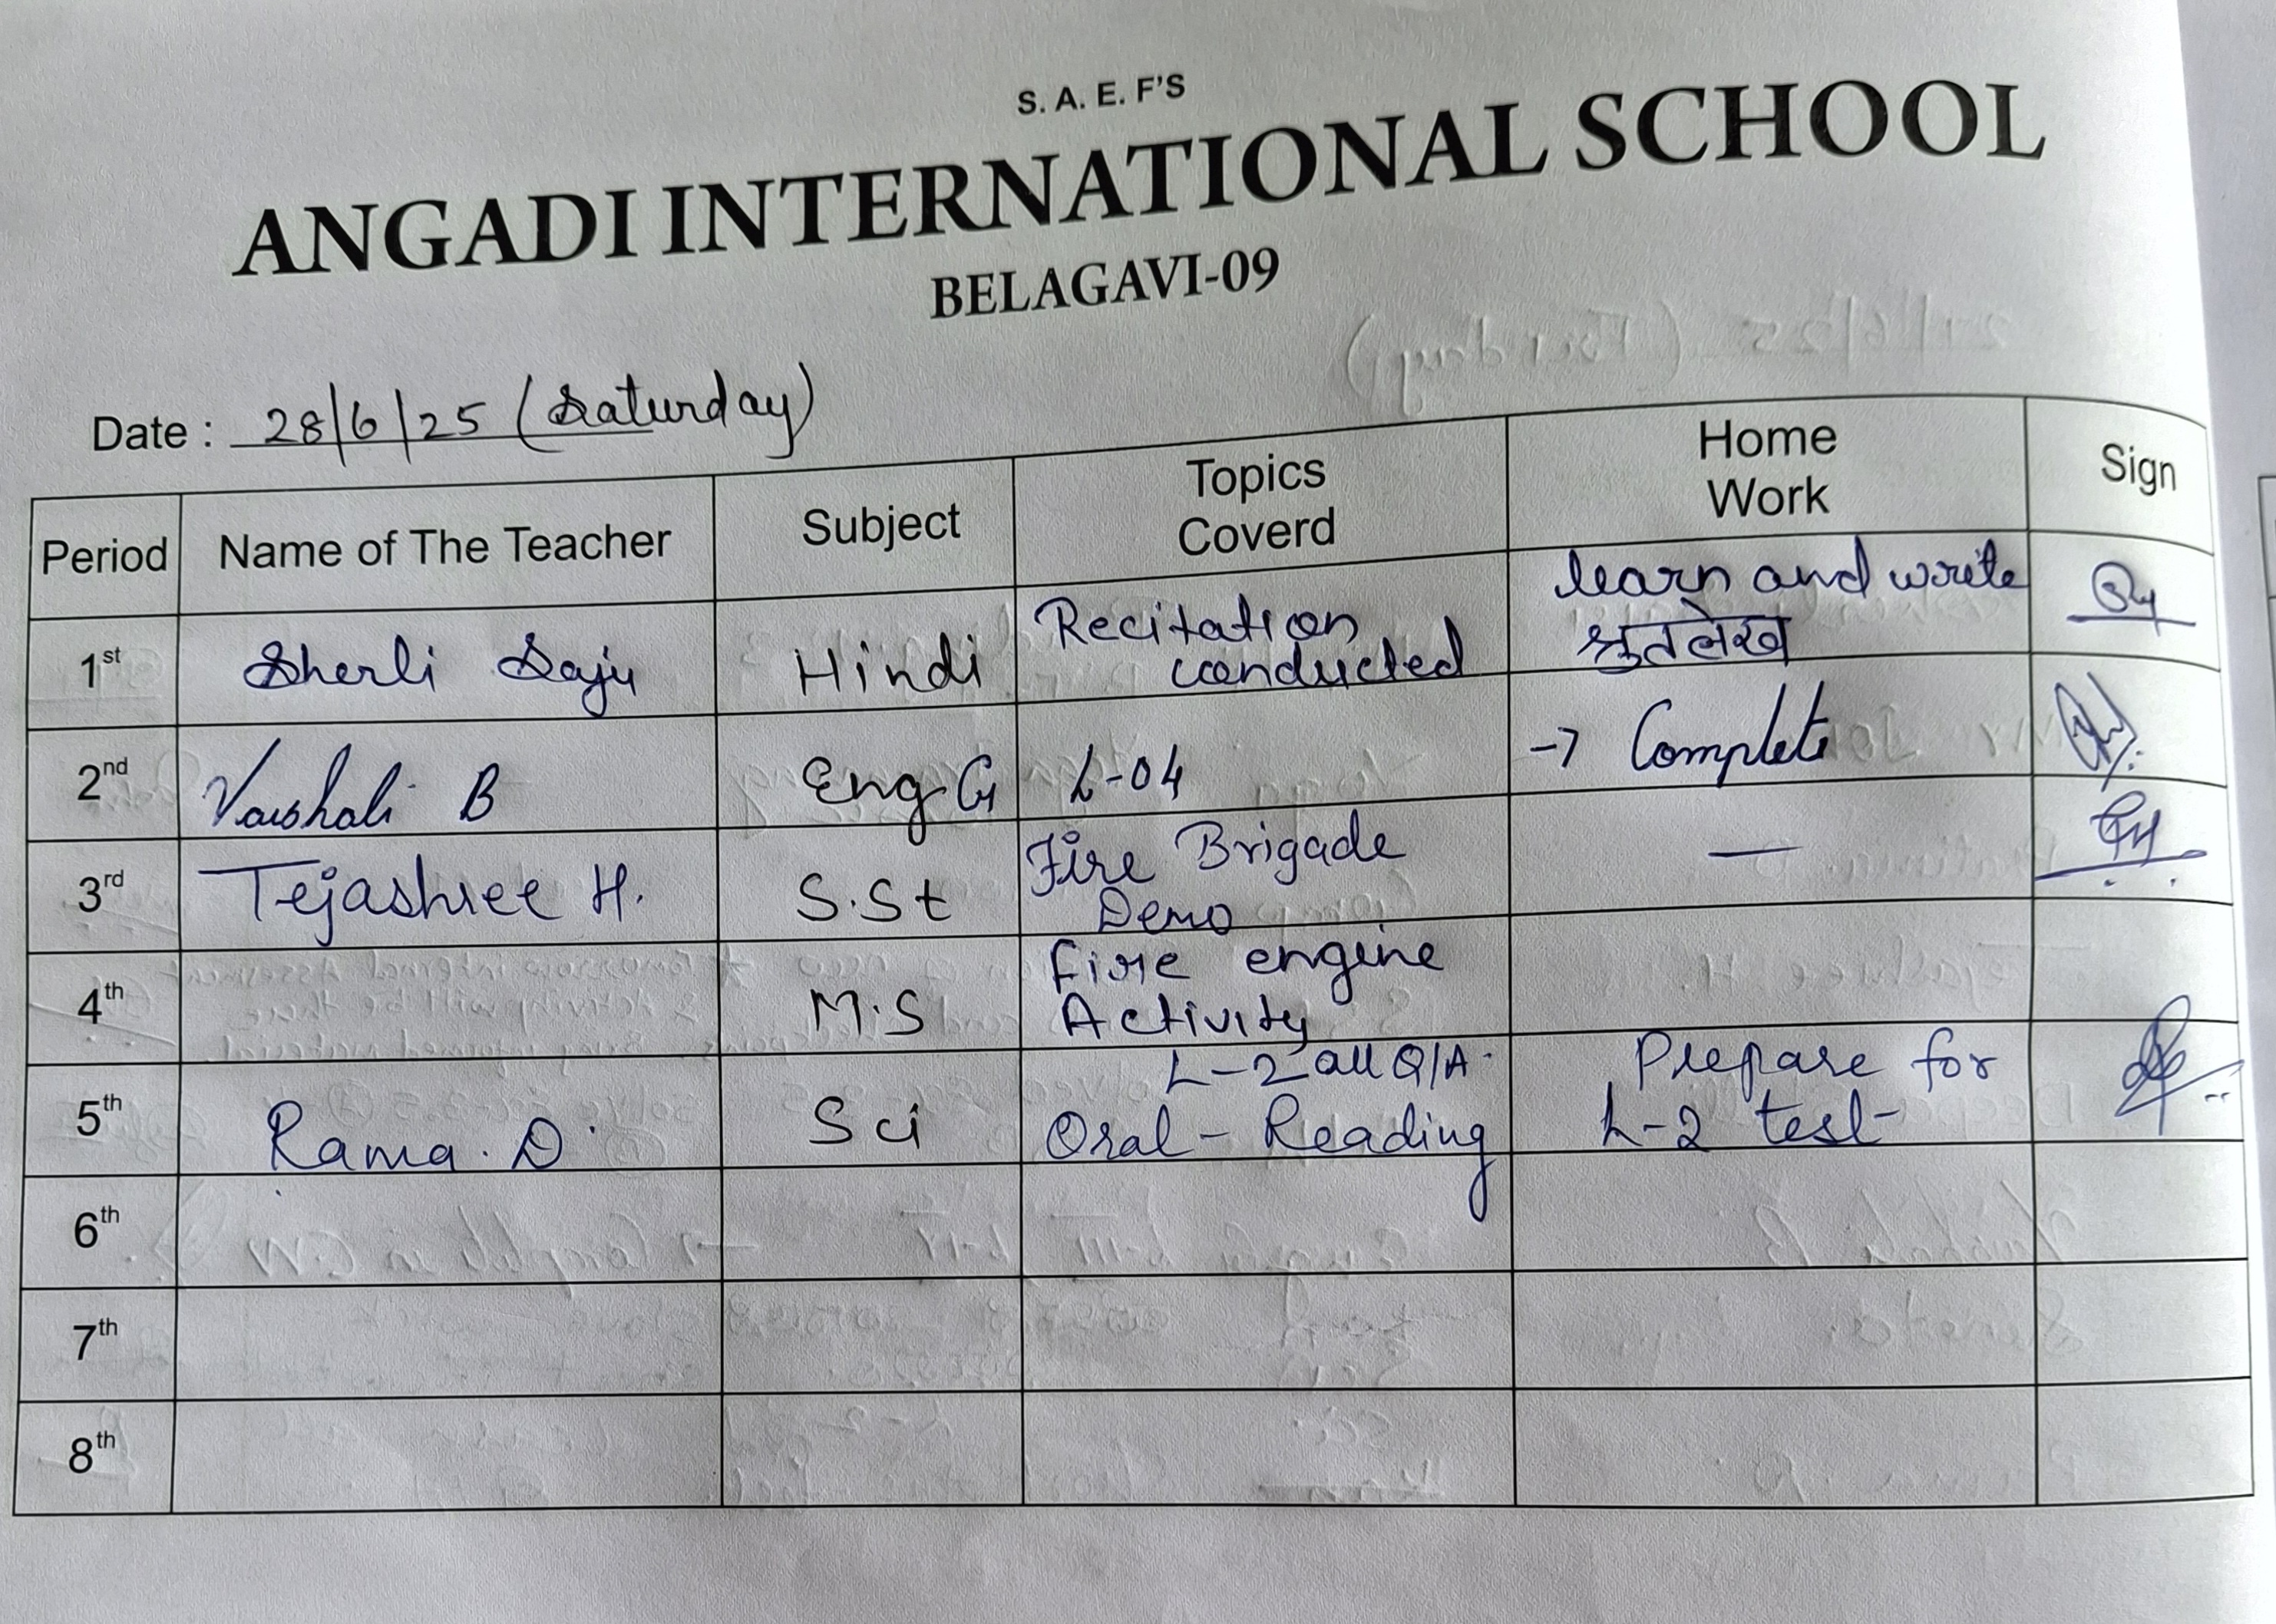 S. A. E. F'S
ANGADI INTERNATIONAL SCHOOL
BELAGAVI-09
Date : 28/6/25 (Saturday)
Period Name of The Teacher Subject Topics Coverd Home Work Sign
1st Sherli Saju Hindi Recitation conducted learn and write श्रुतलेख
2nd Vaishali B Eng G L-04 → Complete
3rd Tejashree H. S.St Fire Brigade Demo —
4th M.S Fire engine Activity
5th Rama. D. Sci L-2 all Q/A. Oral - Reading Prepare for L-2 test
6th
7th
8th